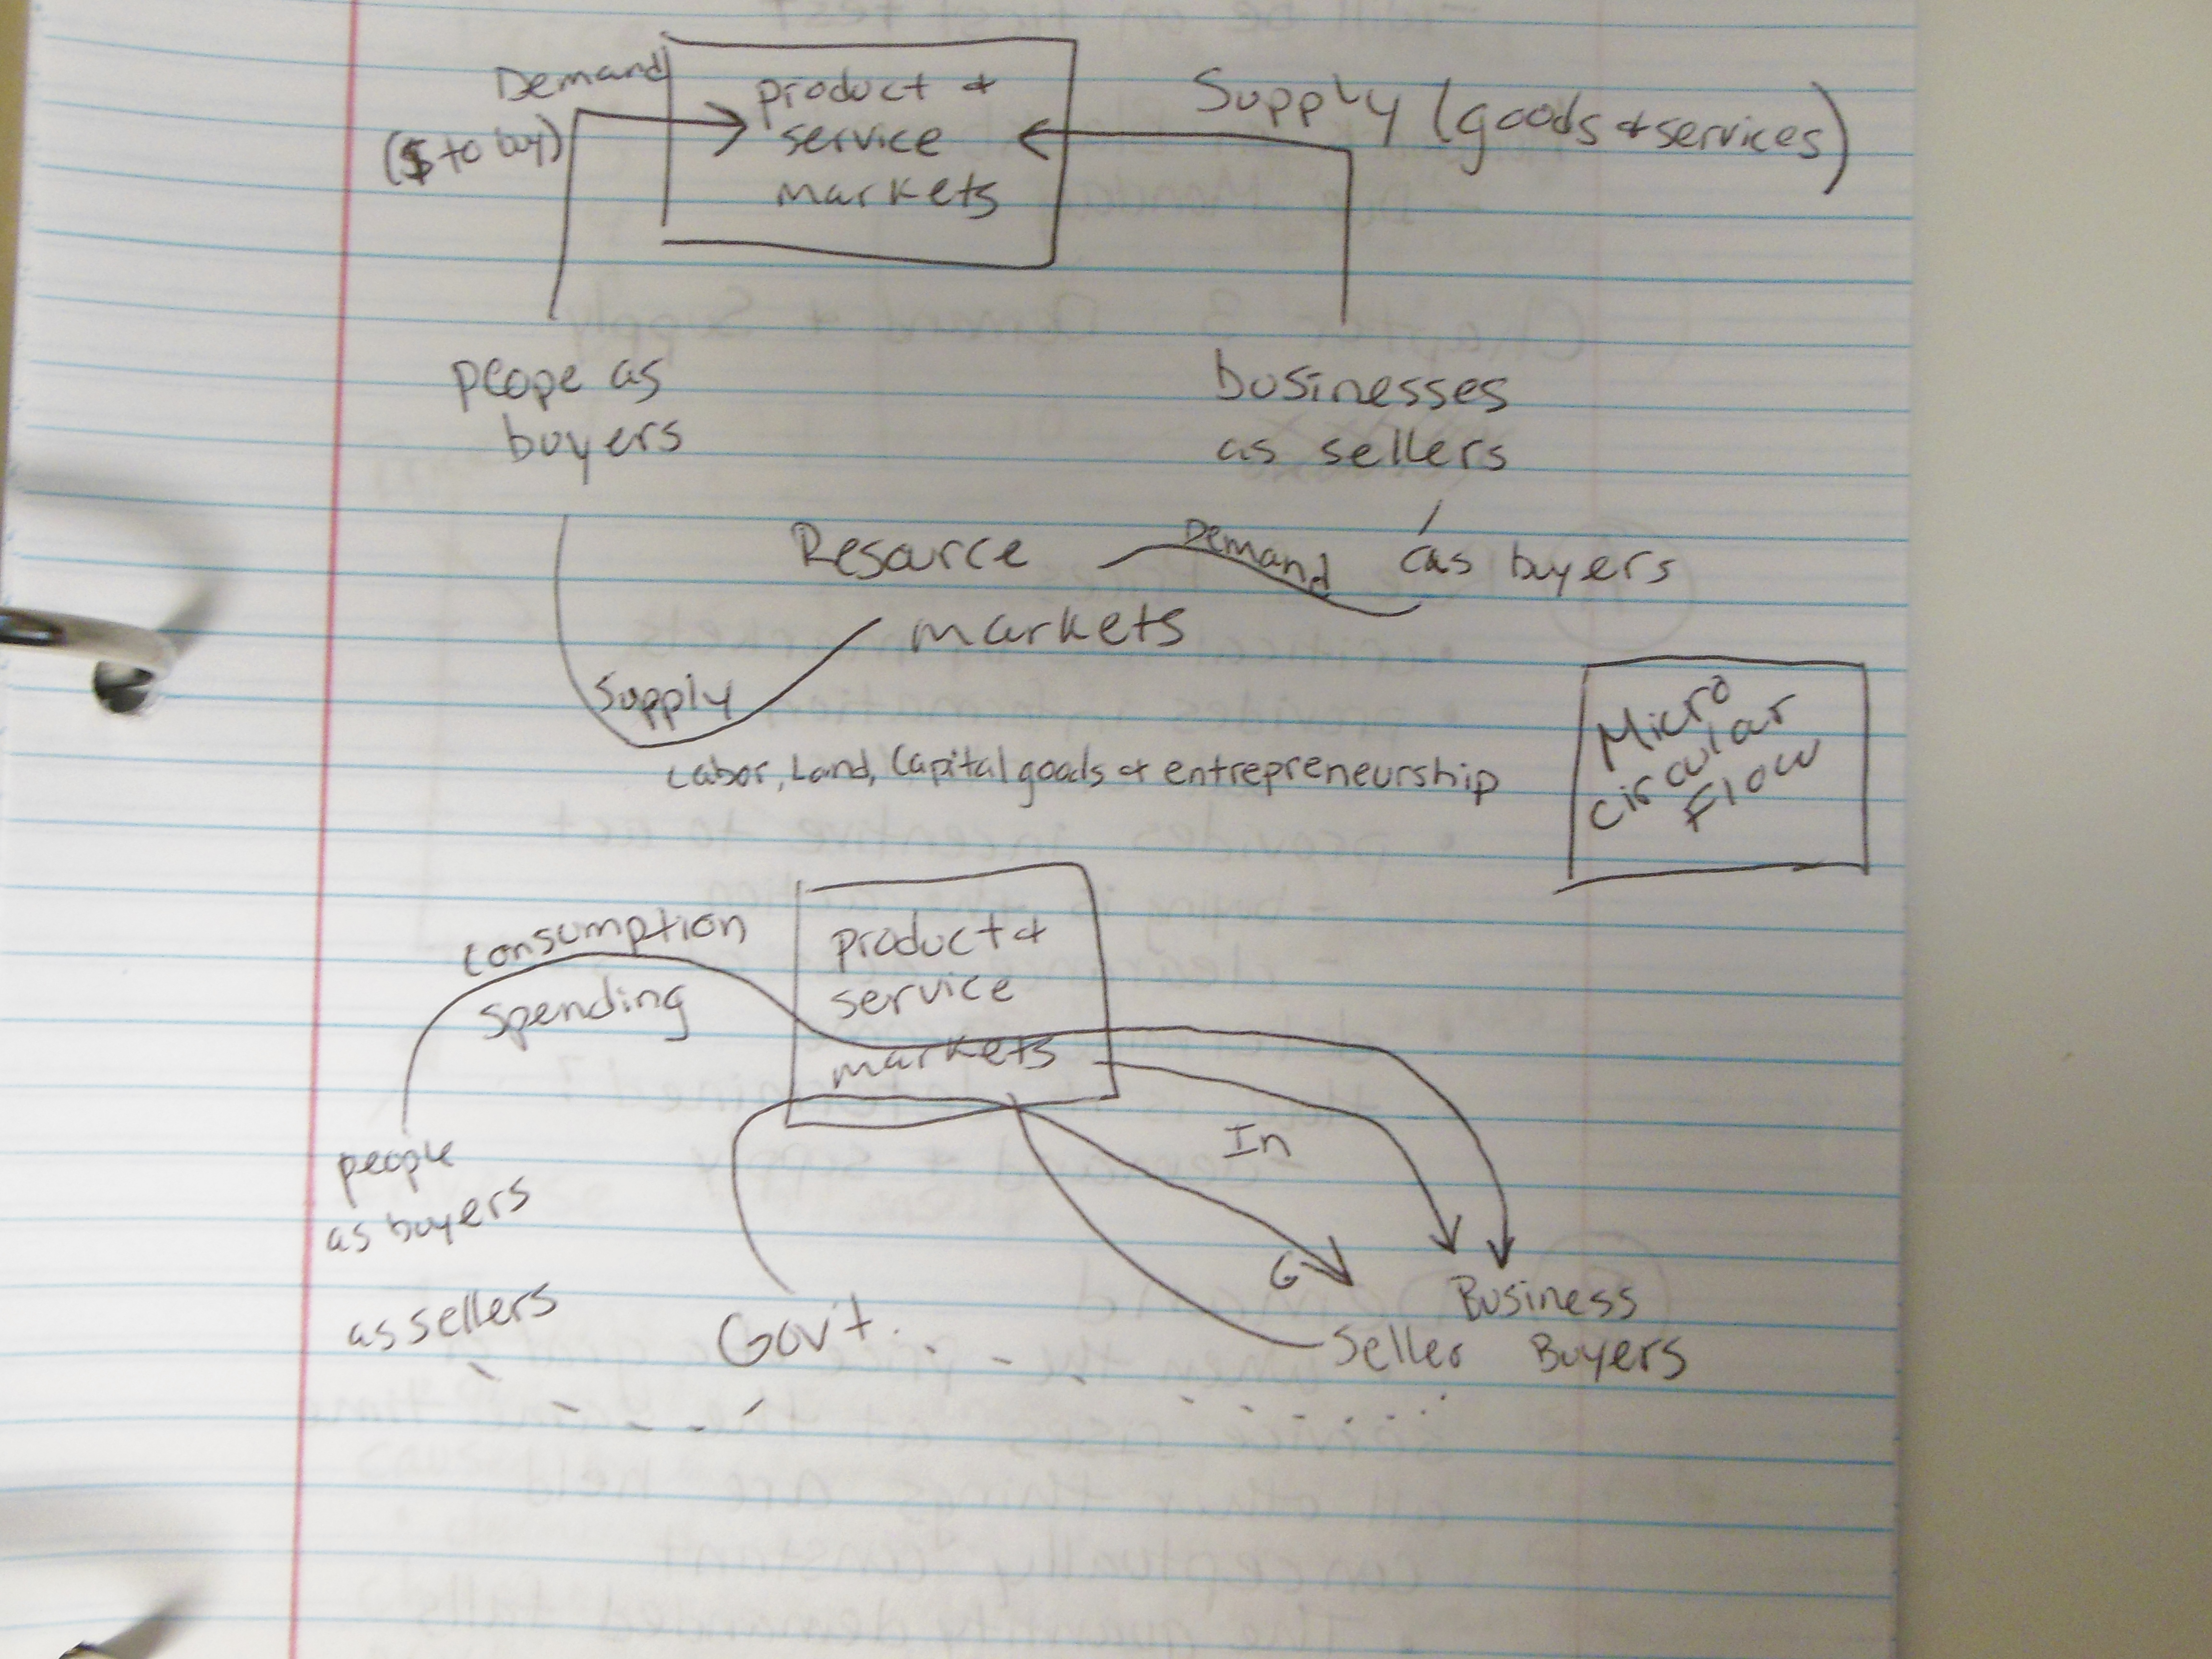 Demand
($ to buy)
product +
service
markets
Supply (goods + services)
peope as
buyers
businesses
as sellers
Resource
markets
Demand
as buyers
Supply
Labor, Land, Capital goods + entrepreneurship
Micro
circular
Flow
consumption
spending
product +
service
markets
people
as buyers
as sellers
Gov't.
In
G
Business
Seller Buyers